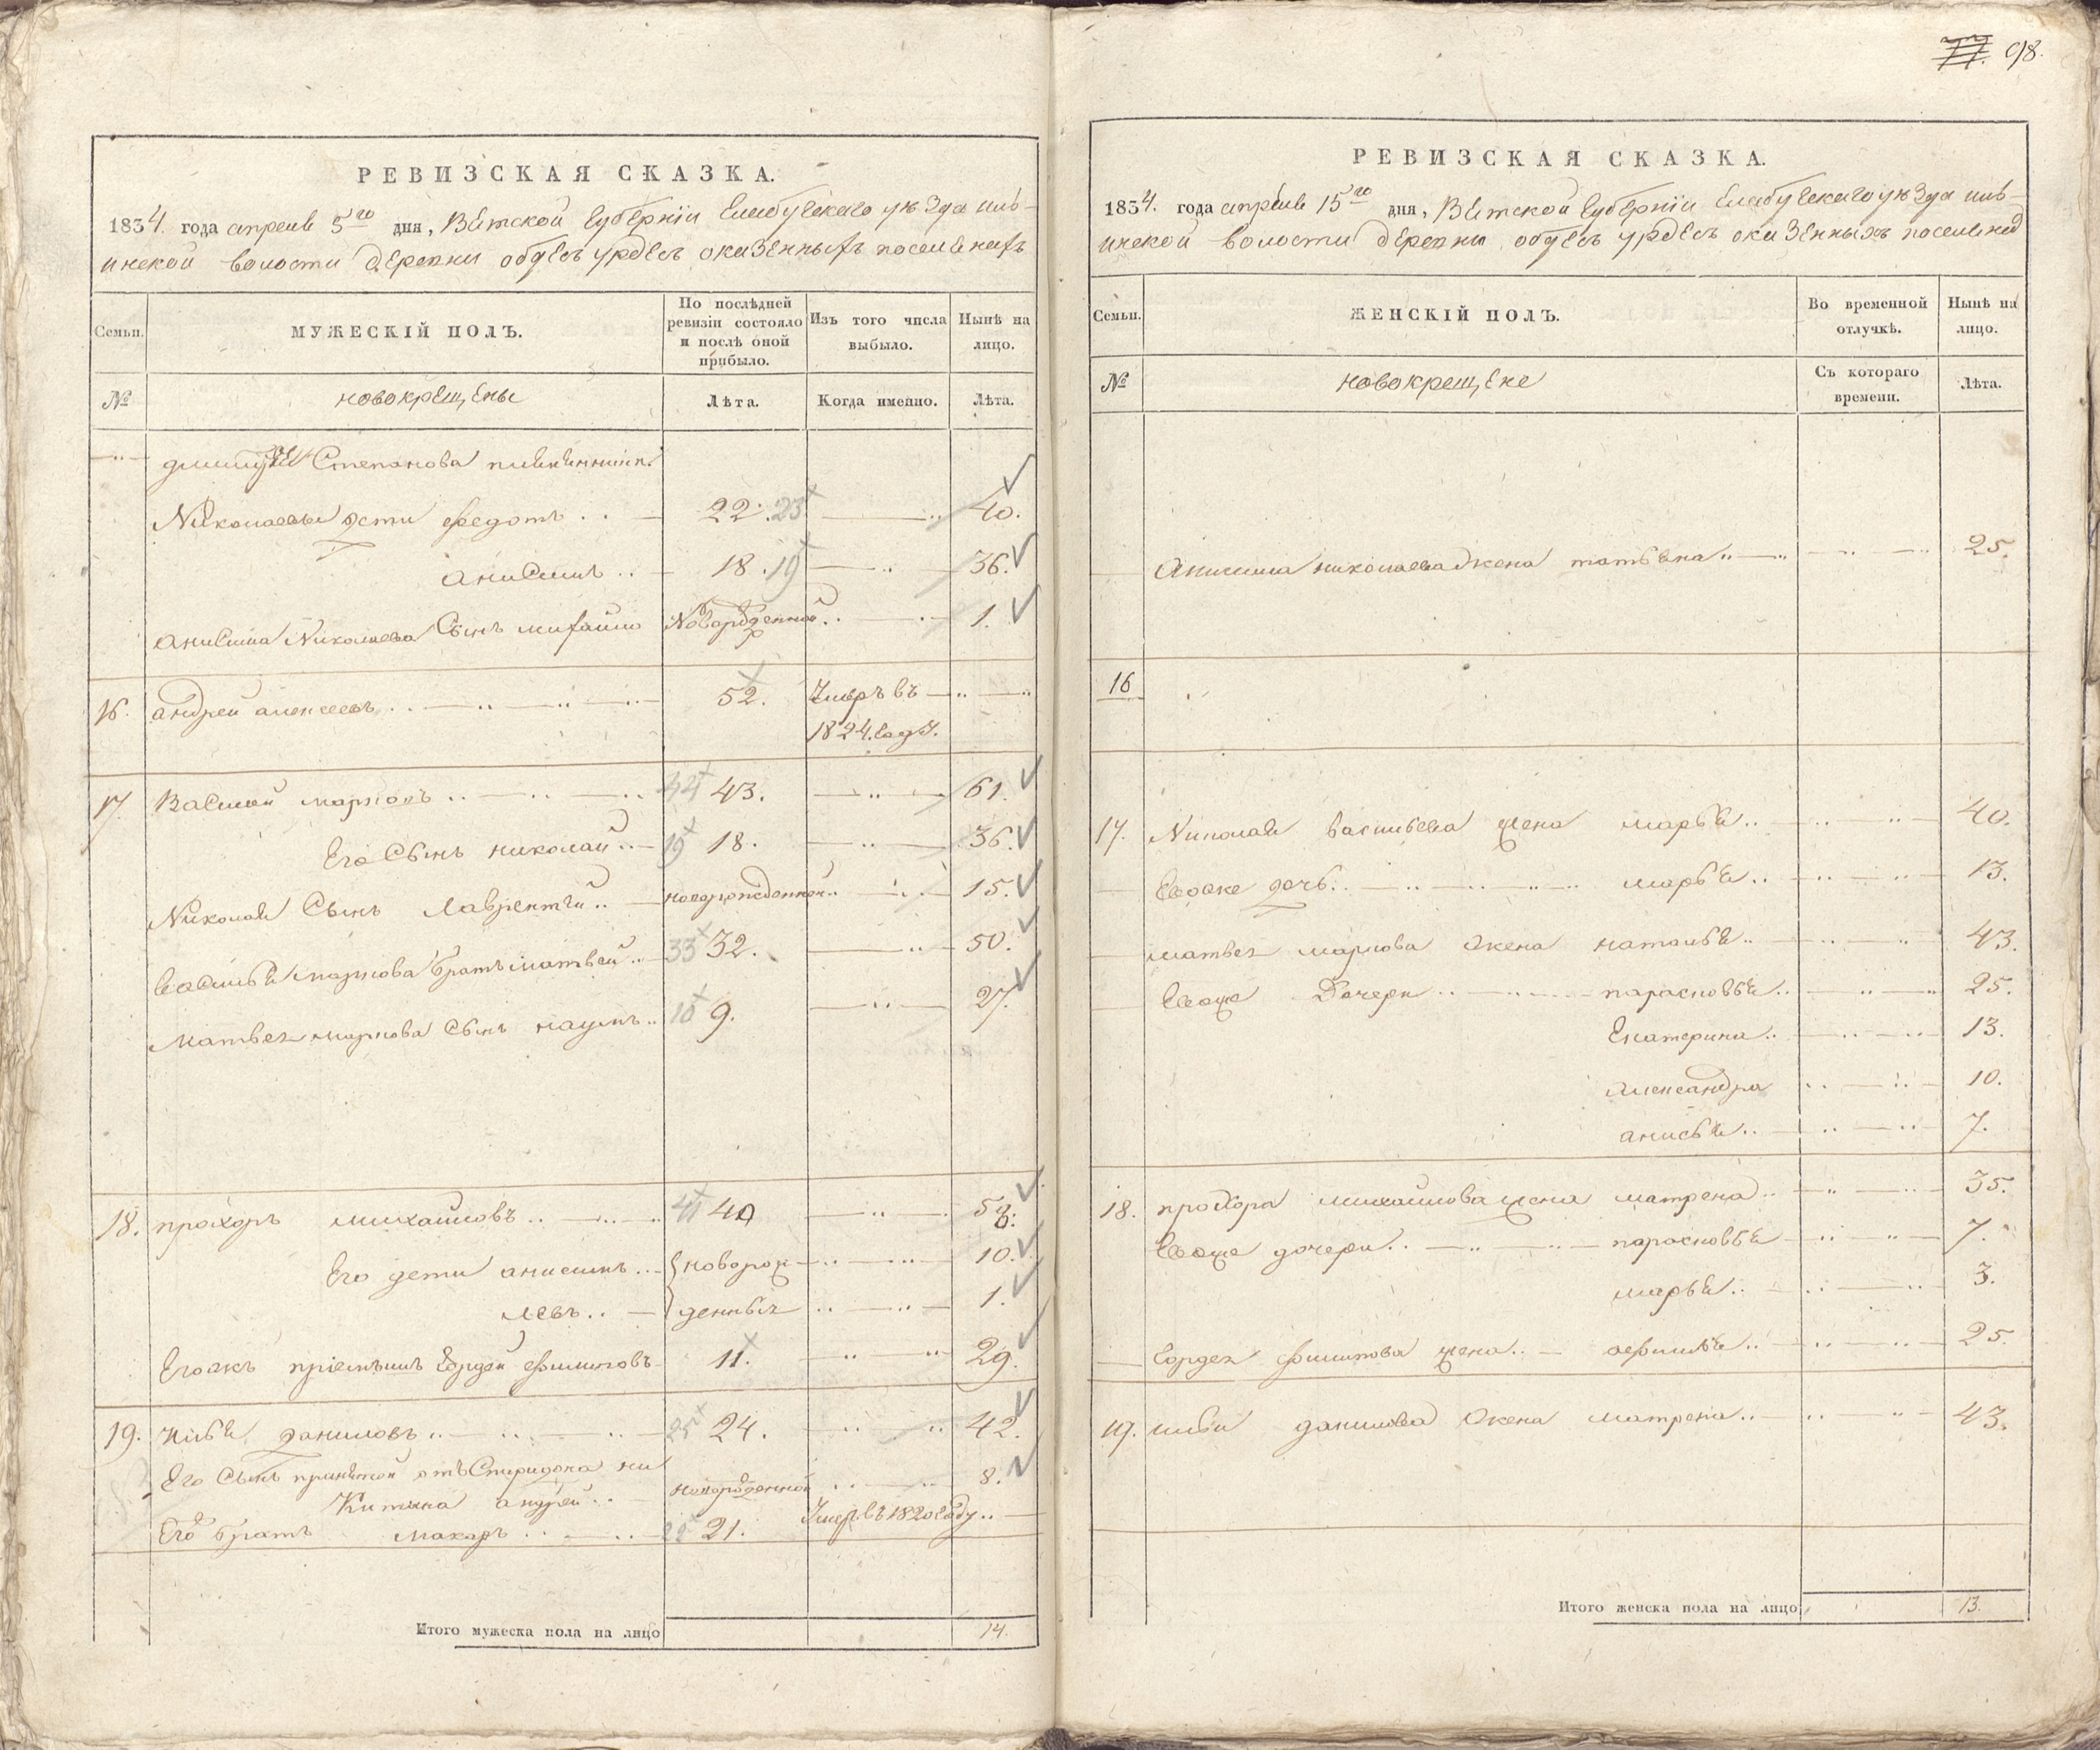 РЕВИЗСКАЯ СКАЗКА.
1834. года апреля 5го дня, Вятской губернiи Елабугскаго уезда
волости деревни казенныхъ
Семьи.
МУЖЕСКIЙ ПОЛЪ.
По послѣдней ревизiи состояло и послѣ оной прибыло.
Изъ того числа выбыло.
Нынѣ на лицо.
№
новокрещены
Лѣта.
Когда именно.
Лѣта.
Степанова
Николаевы дети федотъ 22. 23 40.
анисимъ 18. 19 36.
анисима Николаева Сынъ михайло Новорожденной 1.
16. андрей алексеевъ 52. Умеръ въ
1824. году.
17. Василей марковъ 44 43. 61.
Его Сынъ николай 19 18. 36.
Николая Сынъ лаврентей новорожденной 15.
василья маркова братъ матвей 33 32. 50.
матвея маркова Сынъ наумъ 10 9. 27.
18. прохоръ михайловъ 41 40
Его дети анисимъ новорож 10.
левъ денныя 1.
Егожъ прiемышъ Гордей филиповъ 11. 29.
19. даниловъ 25 24. 42.
Его Сынъ принятой отъ Спиридона ни
китина андрей новорожденной 8.
Его братъ макаръ 22 21. Умеръ въ 1820 году
Итого мужеска пола на лицо 14.
77. 98.
РЕВИЗСКАЯ СКАЗКА.
1834. года апреля 15го дня, Вятской губернiи Елабугскаго уезда
волости деревни казенныхъ
Семьи.
ЖЕНСКIЙ ПОЛЪ.
Во временной отлучкѣ.
Нынѣ на лицо.
№
новокрещене
Съ котораго времени.
Лѣта.
Анисима николаева жена татьяна 25.
16
17. Николая васильева жена марья 40.
дочь марья 13.
матвея маркова жена наталья 43.
дочери парасковья 25.
Екатерина 13.
александра 10.
анисья 7.
18. прохора михайлова жена матрена 35.
дочери парасковья 7.
марья 3.
Гордея филипова жена 25.
19. данилова жена матрена 43.
Итого женска пола на лицо 13.